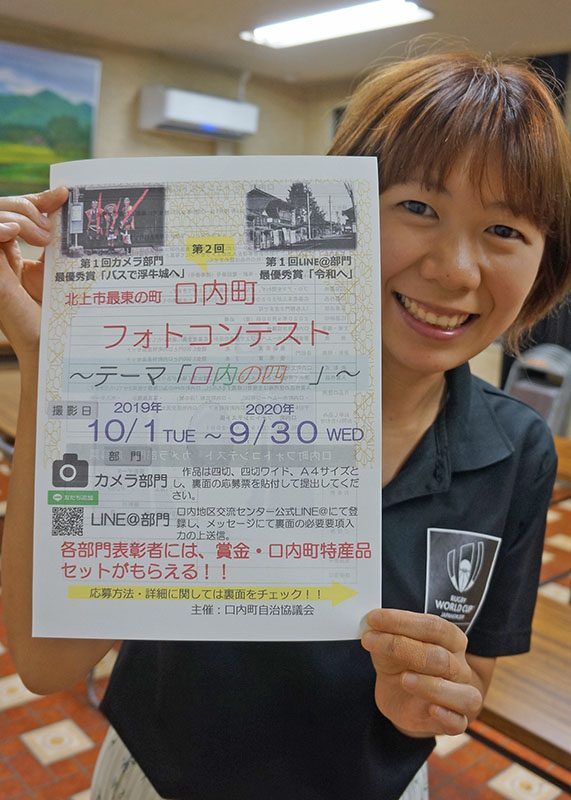 第1回カメラ部門
最優秀賞「バスで浮牛城へ」
第2回
第1回LINE@部門
最優秀賞「令和へ」
北上市最東の町 口内町
フォトコンテスト
～テーマ「口内の四 」～
撮影日 2019年 2020年
10/1 TUE ～ 9/30 WED
部 門
カメラ部門 作品は四切、四切ワイド、A4サイズとし、裏面の応募票を貼付して提出してください。
友だち追加
LINE@部門 口内地区交流センター公式LINE@にて登録し、メッセージにて裏面の必要要項入力の上送信。
各部門表彰者には、賞金・口内町特産品
セットがもらえる！！
応募方法・詳細に関しては裏面をチェック！！
主催：口内町自治協議会
RUGBY
WORLD CUP